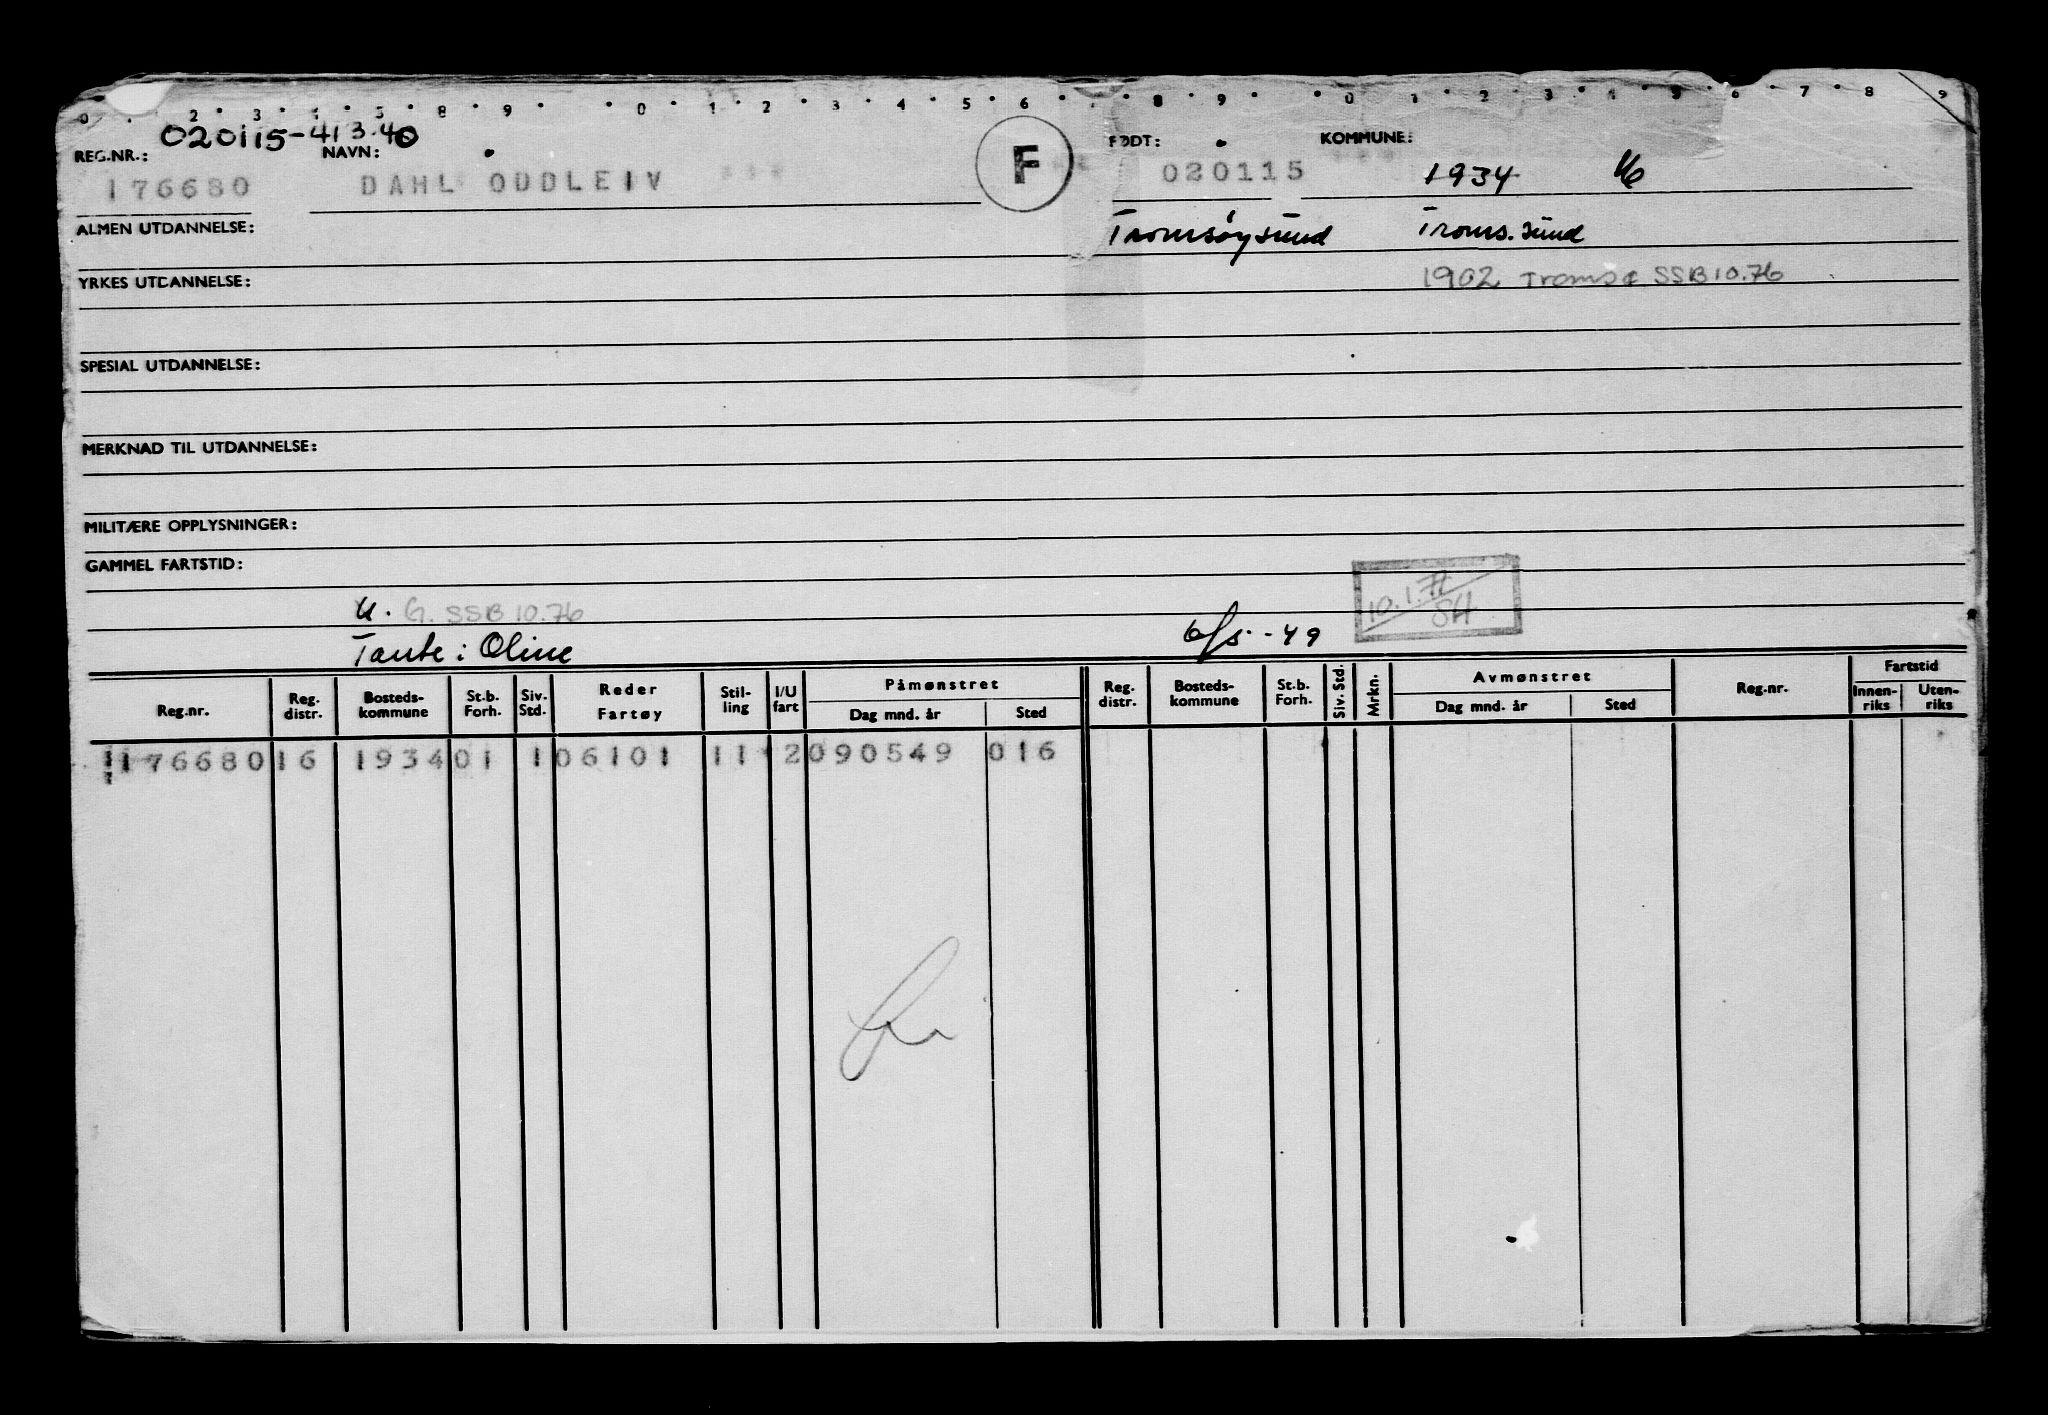 0 . 2 . 3 . 4 . 5 . 8 . 9 . . 0 . 1 . 2 . 3 . 4 . 5 . 6 . . 8 . 9 . . 0 . 1 . 2 . 3 . 4 . 5 . 6 . 7 . 8 . 9
020115-413.40
REG.NR.: NAVN: FØDT: KOMMUNE:
176680 DAHL ODDLEIV F 020115 1934 16
ALMEN UTDANNELSE: Tromsøysund Troms.sund
YRKES UTDANNELSE: 1902 Tromsø SSB 10.76
SPESIAL UTDANNELSE:
MERKNAD TIL UTDANNELSE:
MILITÆRE OPPLYSNINGER:
GAMMEL FARTSTID:
U. G. SSB 10.76 10.1.77 SH
Tante: Oline 6/5-49
Reg.nr. Reg. distr. Bosteds-kommune St.b. Forh. Siv. Std. Reder Fartøy Stil-ling I/U fart Påmønstret Dag mnd. år Sted Reg. distr. Bosteds-kommune St.b. Forh. Siv. Std. Mrkn. Avmønstret Dag mnd. år Sted Reg.nr. Fartstid Innen-riks Uten-riks
176680 16 1934 01 1 06101 11 2 090549 016